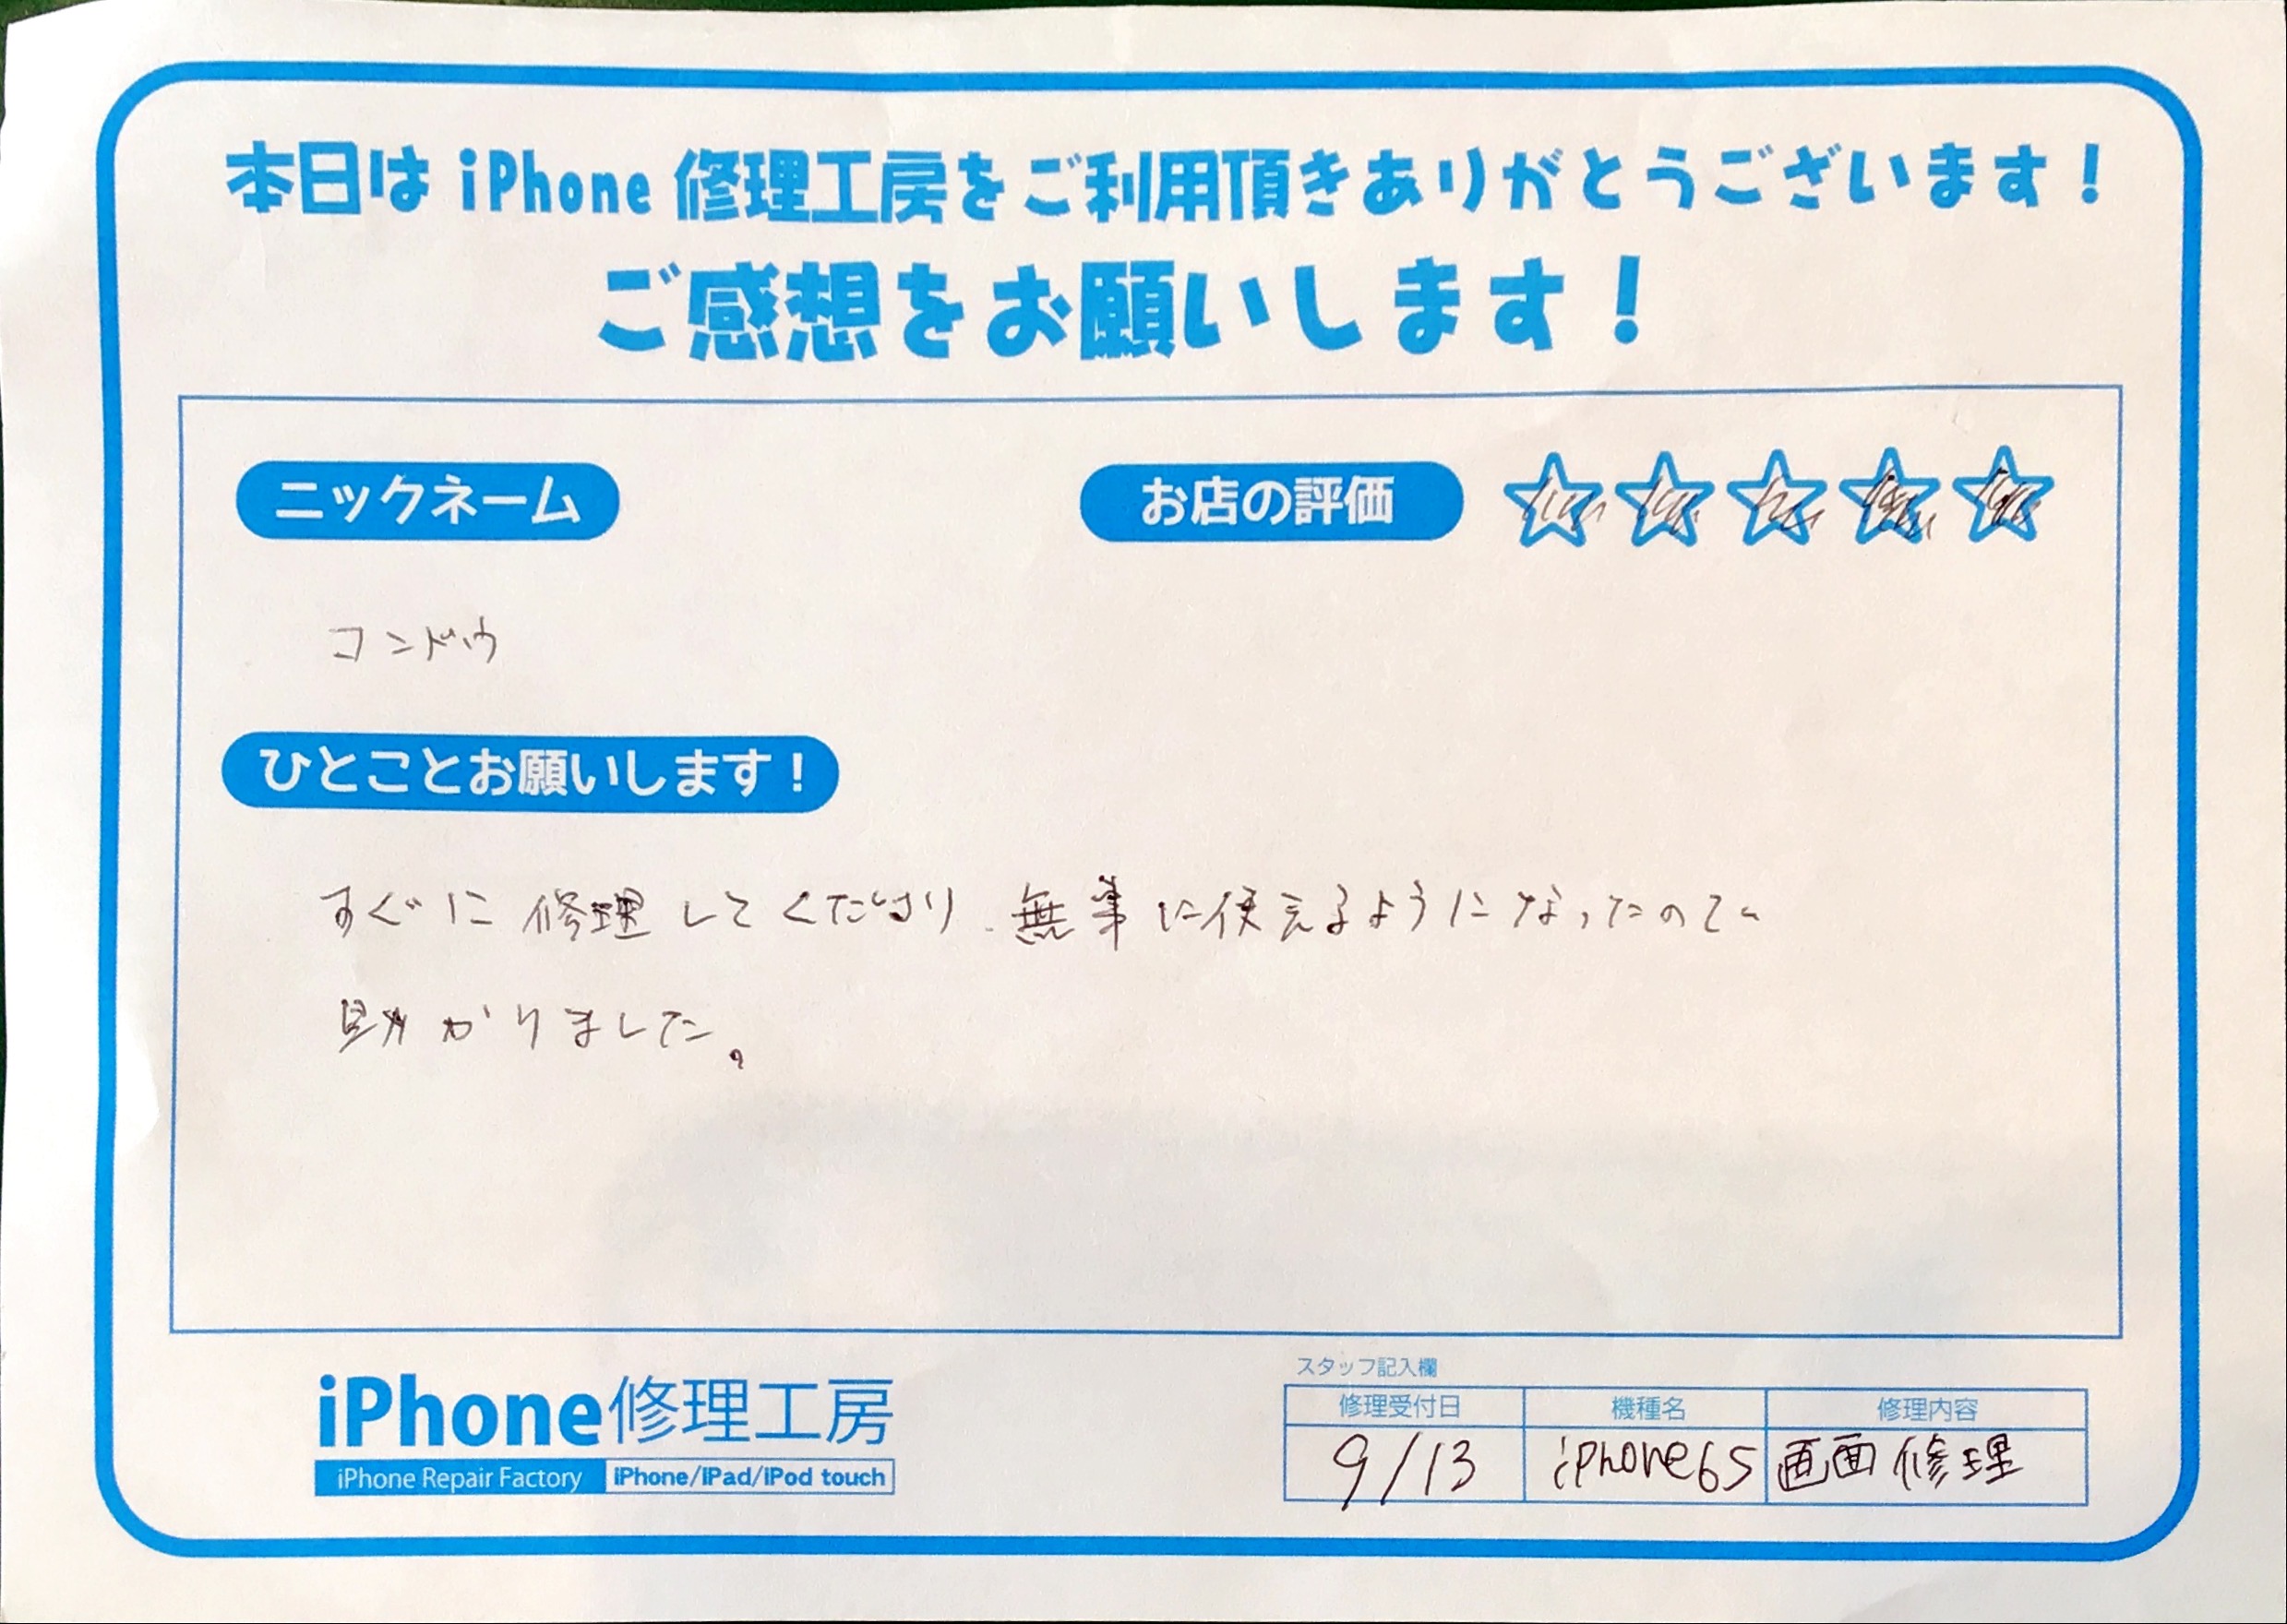 本日は iPhone 修理工房をご利用頂きありがとうございます！
ご感想をお願いします！
ニックネーム
お店の評価
コンドウ
ひとことお願いします！
すぐに修理してくださり、無事に使えるようになったので
助かりました。
スタッフ記入欄
修理受付日 機種名 修理内容
9/13 iPhone6S 画面修理
iPhone修理工房
iPhone Repair Factory iPhone/iPad/iPod touch